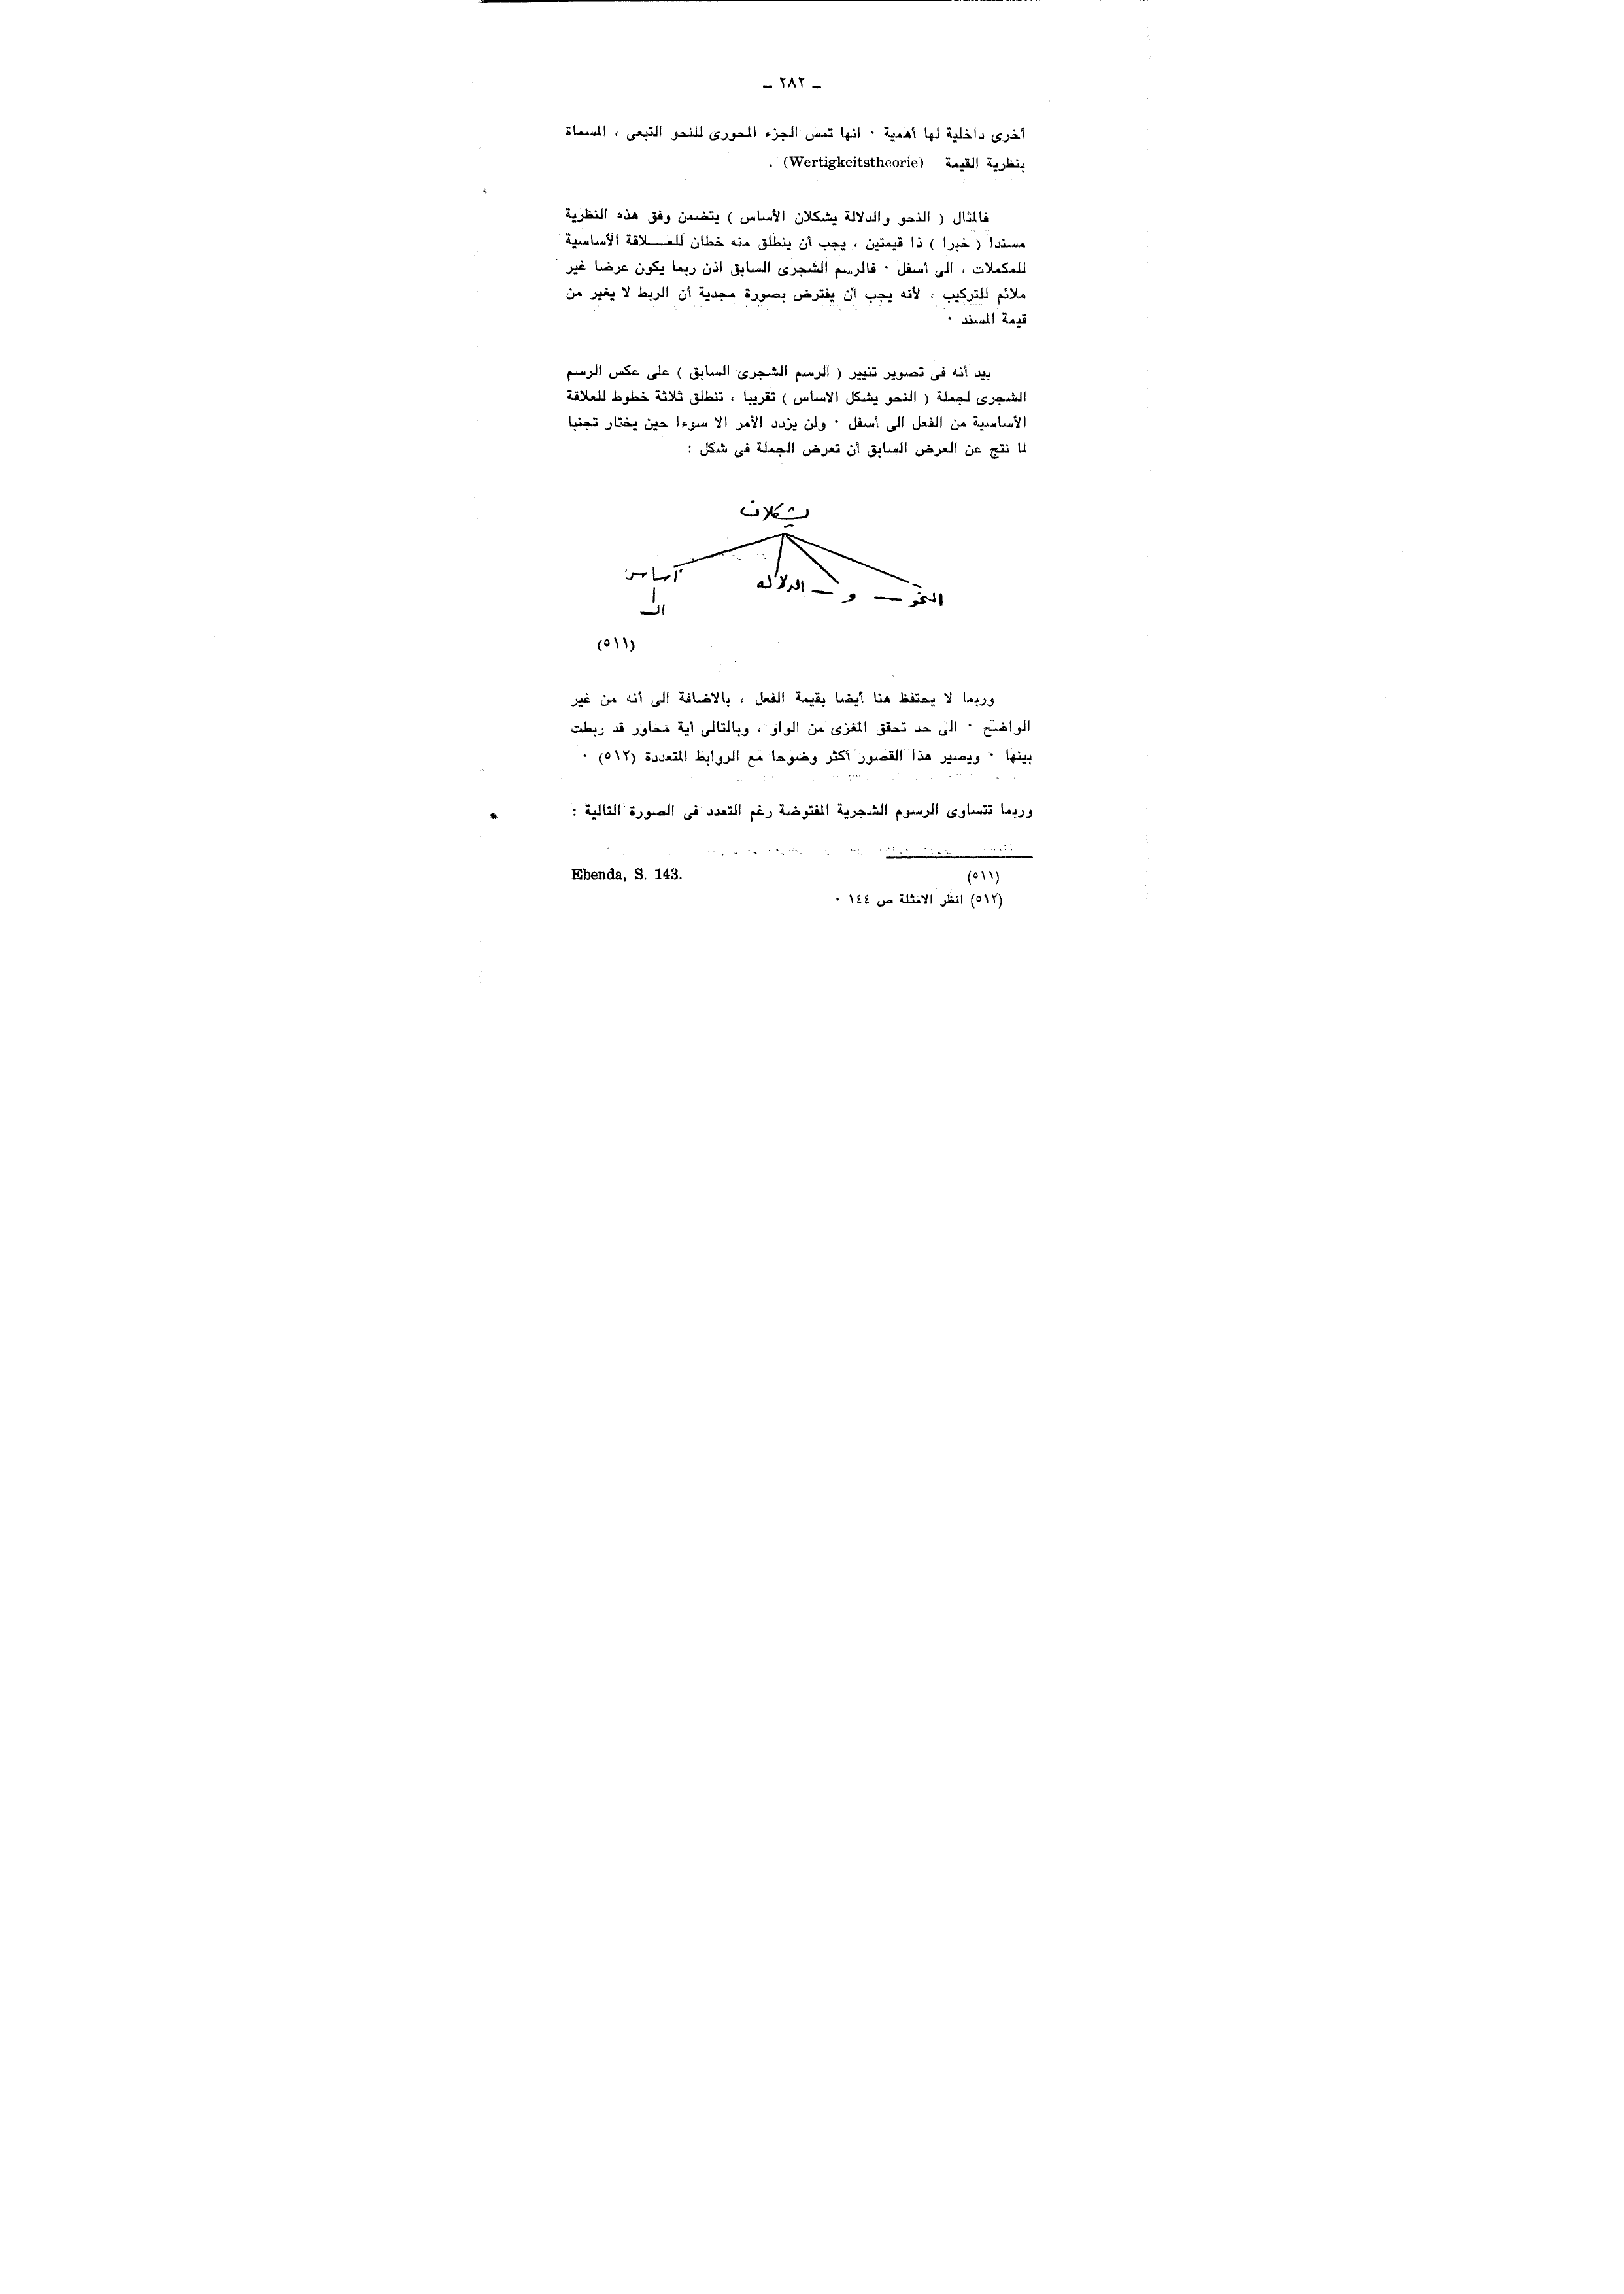 ـ ٢٨٢ ـ
أخرى داخلية لها أهمية ٠ انها تمس الجزء المحورى للنحو التبعى ، المسماة
بنظرية القيمة (Wertigkeitstheorie) .
فالمثال ( النحو والدلالة يشكلان الأساس ) يتضمن وفق هذه النظرية
مسندا ( خبرا ) ذا قيمتين ، يجب أن ينطلق منه خطان للعـــلاقة الأساسية
للمكملات ، الى أسفل ٠ فالرسم الشجرى السابق اذن ربما يكون عرضا غير
ملائم للتركيب ، لأنه يجب أن يفترض بصورة مجدية أن الربط لا يغير من
قيمة المسند ٠
بيد أنه فى تصوير تنيير ( الرسم الشجرى السابق ) على عكس الرسم
الشجرى لجملة ( النحو يشكل الاساس ) تقريبا ، تنطلق ثلاثة خطوط للعلاقة
الأساسية من الفعل الى أسفل ٠ ولن يزدد الأمر الا سوءا حين يختار تجنبا
لما نتج عن العرض السابق أن تعرض الجملة فى شكل :
يشكلان
النحو — و — الدلاله أساس
الـ
(٥١١)
وربما لا يحتفظ هنا أيضا بقيمة الفعل ، بالاضافة الى أنه من غير
الواضح ٠ الى حد تحقق المغزى من الواو ، وبالتالى اية محاور قد ربطت
بينها ٠ ويصير هذا القصور أكثر وضوحا مع الروابط المتعددة (٥١٢) ٠
وربما تتساوى الرسوم الشجرية المفتوضة رغم التعدد فى الصورة التالية :
(٥١١) Ebenda, S. 143.
(٥١٢) انظر الامثلة ص ١٤٤ ٠